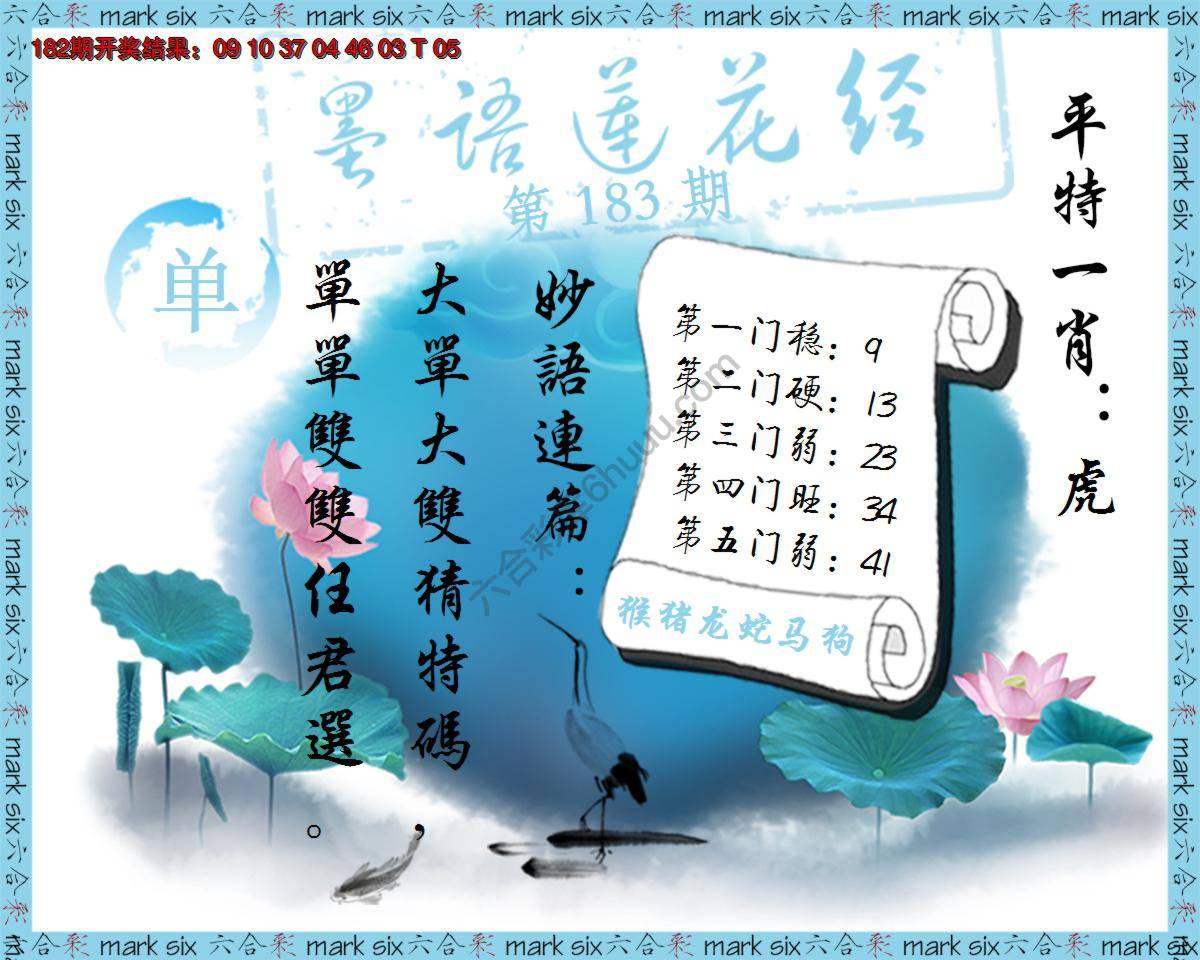 六合彩 mark six 六合彩 mark six 六合彩 mark six 六合彩 mark six 六合彩 mark six 六合彩 mark six
182期开奖结果：09 10 37 04 46 03 T 05
墨語莲花经
第 183 期
单
平特一肖：虎
妙語連篇：
大單大雙猜特碼，
單單雙雙任君選。
第一门稳：9
第二门硬：13
第三门弱：23
第四门旺：34
第五门弱：41
猴猪龙蛇马狗
六合彩 mark six 六合彩 mark six 六合彩 mark six 六合彩 mark six 六合彩 mark six 六合彩 mark six